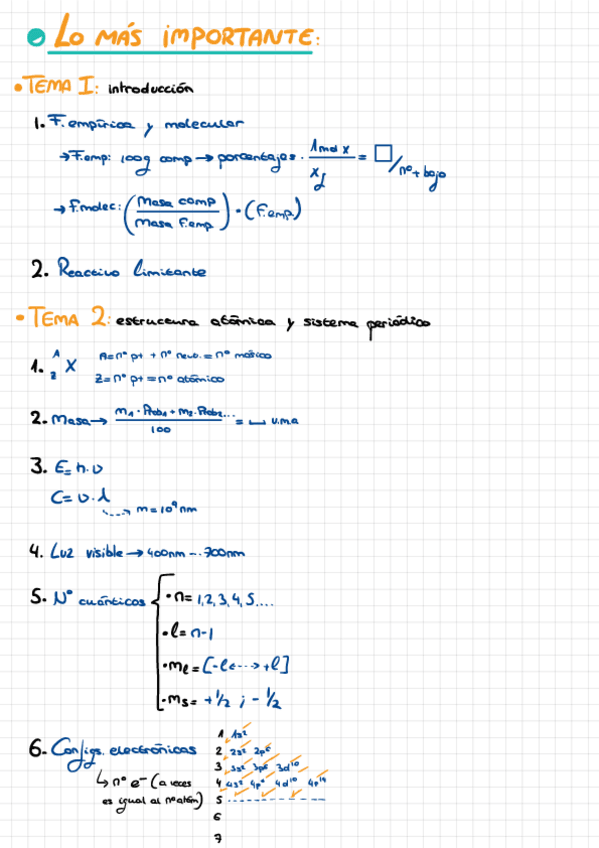 LO MÁS IMPORTANTE:
• TEMA I: introducción
1. F. empírica y molecular
→ F.emp: 100g comp → porcentajes · 1mol x / xg = □ / nº + bajo
→ F.molec: (Masa comp / Masa F.emp) · (F.emp.)
2. Reactivo limitante
• TEMA 2: estructura atómica y sistema periódico
1. A Z X A = nº p+ + nº neut. = nº másico
Z = nº p+ = nº atómico
2. Masa → m1 · Prob1 + m2 · Prob2... / 100 = ⎵ u.m.a
3. E = h·ν
C = ν·λ
m = 10⁹ nm
4. Luz visible → 400nm -- 700nm
5. Nº cuánticos { · n = 1, 2, 3, 4, 5....
· l = n-1
· ml = [-l <---> +l]
· ms = +1/2 ; -1/2
6. Configs. electrónicas
↳ nº e⁻ (a veces
es igual al nº atóm)
1 1s²
2 2s² 2p⁶
3 3s² 3p⁶ 3d¹⁰
4 4s² 4p⁶ 4d¹⁰ 4f¹⁴
5
6
7